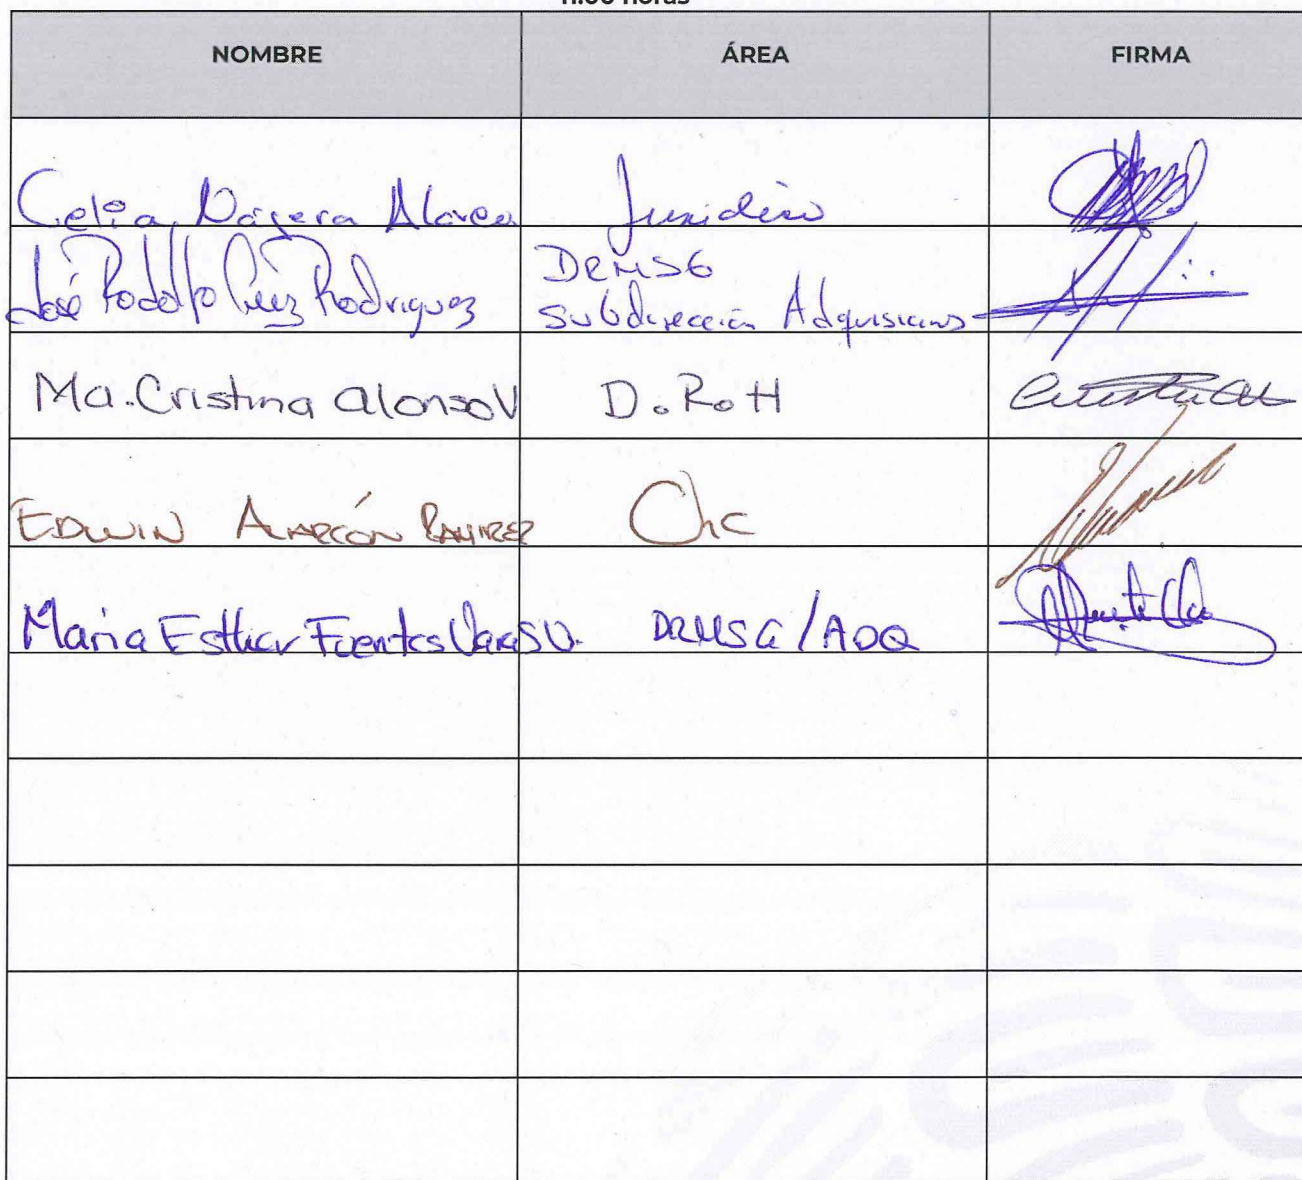 11:00 horas
NOMBRE ÁREA FIRMA
Celia Nájera Jurídico
José Rodolfo Cruz Rodriguez DRMSG
Subdirección Adquisicions
Ma. Cristina Alonso V D.R.H
EDWIN ALARCÓN RAMIREZ OIC
Maria Esther Fuentes DRMSG/ADQ